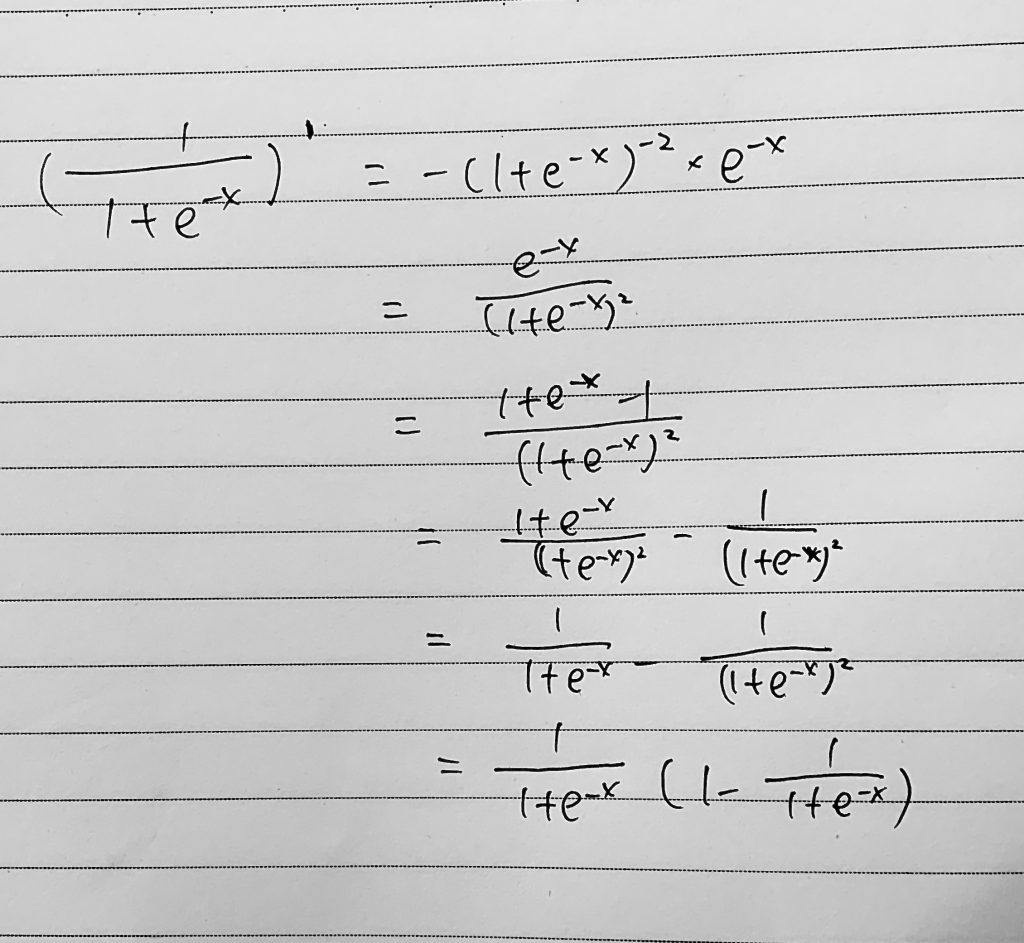 (1/(1+e^{-x}))' = -(1+e^{-x})^{-2} × e^{-x}
= e^{-x}/(1+e^{-x})²
= (1+e^{-x}-1)/(1+e^{-x})²
= (1+e^{-x})/(1+e^{-x})² - 1/(1+e^{-x})²
= 1/(1+e^{-x}) - 1/(1+e^{-x})²
= 1/(1+e^{-x}) (1 - 1/(1+e^{-x}))